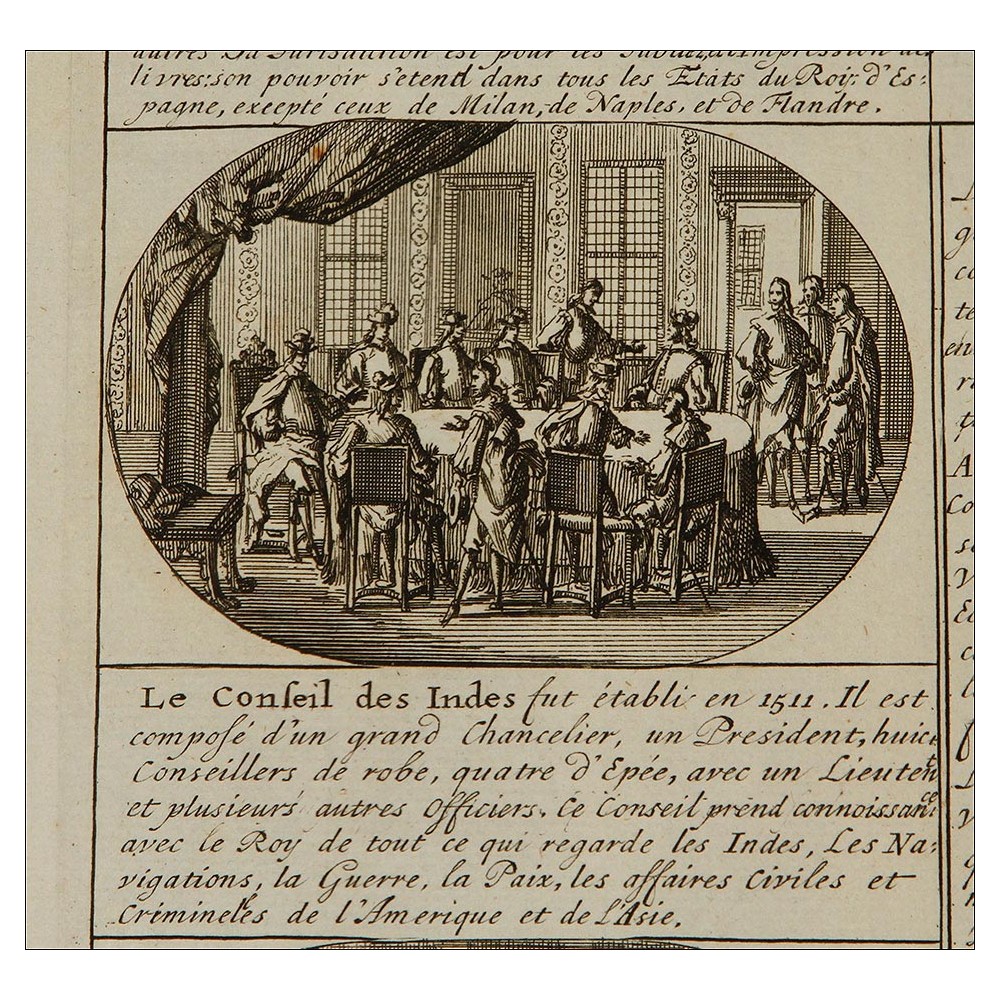 autres Sa Jurisdiction est pour les
livres: son pouvoir s'etend dans tous les Etats du Roy d'Es:
pagne, excepté ceux de Milan, de Naples, et de Flandre.
Le Conseil des Indes fut établi en 1511. Il est
composé d'un grand Chancelier, un President, huict
Conseillers de robe, quatre d'Epée, avec un Lieutent
et plusieurs autres Officiers. Ce Conseil prend connoissance
avec le Roy de tout ce qui regarde les Indes, Les Na:
vigations, la Guerre, la Paix, les affaires Civiles et
Crimineles de l'Amerique et de L'Asie.